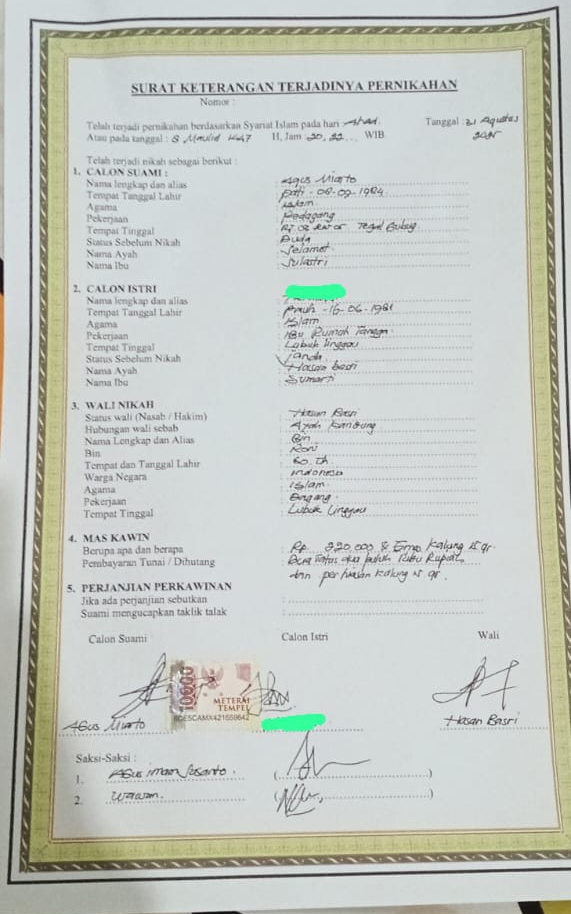 SURAT KETERANGAN TERJADINYA PERNIKAHAN
Nomor :
Telah terjadi pernikahan berdasarkan Syariat Islam pada hari : Ahad. Tanggal : 31 Agustus 2025
Atau pada tanggal : 8 Maulid 1447 H, Jam 20,22 WIB.
Telah terjadi nikah sebagai berikut :
1. CALON SUAMI :
Nama lengkap dan alias : Agus Miarto
Tempat Tanggal Lahir : pati - 08-09-1984
Agama : Islam.
Pekerjaan : Pedagang
Tempat Tinggal : RT 02 Tegal
Status Sebelum Nikah : Duda
Nama Ayah : Selamet
Nama Ibu : Sulastri
2. CALON ISTRI
Nama lengkap dan alias :
Tempat Tanggal Lahir : -06-1981
Agama : Islam
Pekerjaan : Ibu Rumah Tangga
Tempat Tinggal : Lubuk linggau
Status Sebelum Nikah : Janda
Nama Ayah : Hasan basri
Nama Ibu : Sumarti
3. WALI NIKAH
Status wali (Nasab / Hakim) : Hasan Basri
Hubungan wali sebab : Ayah kandung
Nama Lengkap dan Alias : Bin
Bin : Roni
Tempat dan Tanggal Lahir : 60. Th
Warga Negara : indonesia
Agama : Islam.
Pekerjaan : Dagang.
Tempat Tinggal : Lubuk Linggau
4. MAS KAWIN
Berupa apa dan berapa : Rp. 220.000 & Emas Kalung 15 gr.
Pembayaran Tunai / Dihutang : Dua ratus dua puluh Ribu Rupiah,
dan perhiasan kalung 15 gr.
5. PERJANJIAN PERKAWINAN
Jika ada perjanjian sebutkan :
Suami mengucapkan taklik talak :
Calon Suami Calon Istri Wali
10000
METERAI
TEMPEL
Agus Miarto Hasan Basri
Saksi-Saksi :
1. Agus imam Susanto. ( )
2. Wawan. ( )